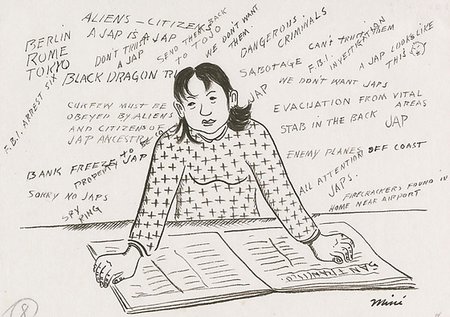 BERLIN
ROME
TOKYO
ALIENS – CITIZENS
A JAP IS A JAP
DON'T TRUST
A JAP
SEND THEM BACK
TO TOJO
WE DON'T WANT
THEM.
BLACK DRAGON
F.B.I. ARREST SIX
CURFEW MUST BE
OBEYED BY ALIENS
AND CITIZENS OF
JAP ANCESTRY
BANK FREEZE JAP
PROPERTY
SORRY NO JAPS
SPY
RING
DANGEROUS
CRIMINALS
SABOTAGE
F.B.I.
CAN'T TRUST
THEM
A JAP LOOKS LIKE
THIS
WE DON'T WANT JAPS
JAP
EVACUATION FROM VITAL
AREAS
STAB IN THE BACK
JAP
ENEMY PLANES OFF COAST
ALL ATTENTION
JAPS.
FIRECRACKERS FOUND IN
HOME NEAR AIRPORT
SAN FRANCISCO
Miné
8